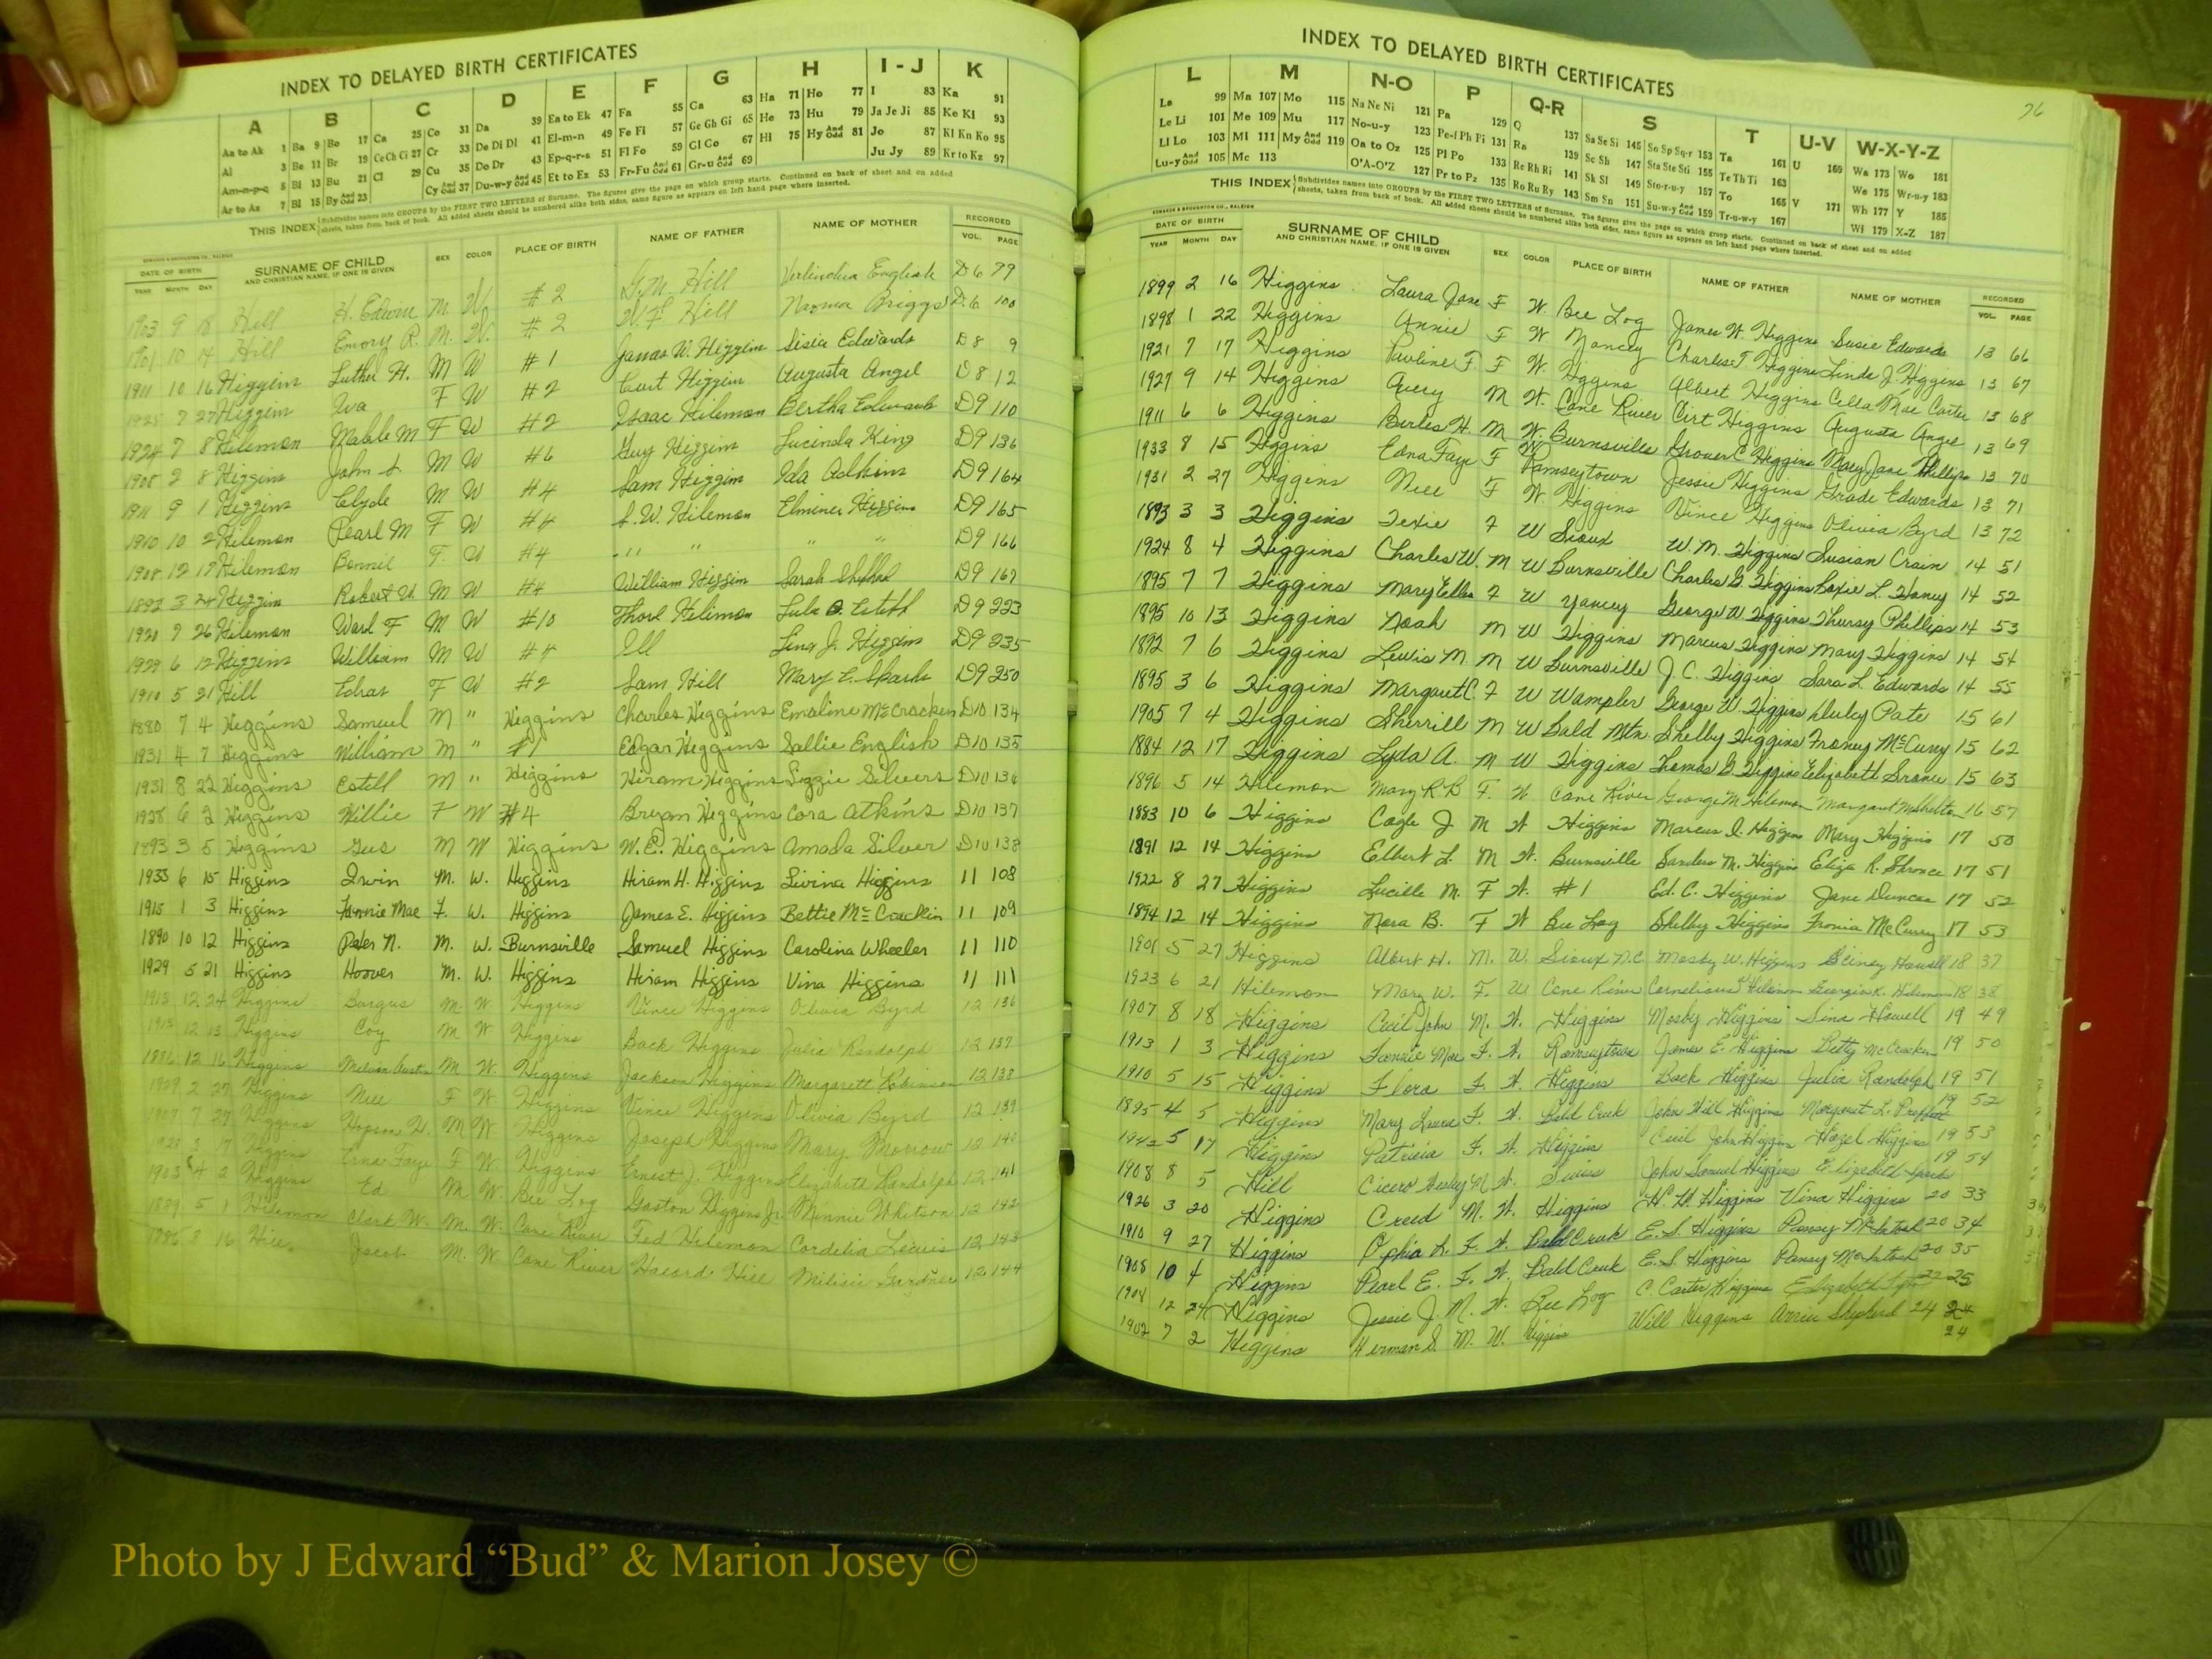 INDEX TO DELAYED BIRTH CERTIFICATES
A B C D E F G H I - J K
Aa to Ak 1 Ba 9 Bo 17 Ca 25 Co 31 Da 39 Ea to Ek 47 Fa 55 Ga 63 Ha 71 Ho 77 I 83 Ka 91
Al 3 Be 11 Br 19 Ce Ch Ci 27 Cr 33 De Di Dl 41 El-m-n 49 Fe Fi 57 Ge Gh Gi 65 He 73 Hu 79 Ja Je Ji 85 Ke Kl 93
Am-n-p-q 5 Bi 13 Bu 21 Cl 29 Cu 35 Do Dr 43 Ep-q-r-s 51 Fl Fo 59 Gl Go 67 Hi 75 Hy And Odd 81 Jo 87 Kl Kn Ko 95
Ar to Az 7 Bl 15 By And Odd 23 Cy And Odd 37 Du-w-y And Odd 45 Et to Ez 53 Fr-Fu And Odd 61 Gr-u And Odd 69 Ju Jy 89 Kr to Kz 97
THIS INDEX Subdivides names into GROUPS by the FIRST TWO LETTERS of Surname. The figures give the page on which group starts. Continued on back of sheet and on added
sheets, taken from back of book. All added sheets should be numbered alike both sides, same figure as appears on left hand page where inserted.
DATE OF BIRTH SURNAME OF CHILD SEX COLOR PLACE OF BIRTH NAME OF FATHER NAME OF MOTHER RECORDED
YEAR MONTH DAY AND CHRISTIAN NAME, IF ONE IS GIVEN VOL. PAGE
1903 9 Hill H. Edwin M. W. #2 Hill English D6 79
1901 10 14 Hill Emory R. M. W. #2 W. F. Hill Naoma Briggs D.6 100
1911 10 16 Higgins Luther H. M W #1 James W. Higgins Edwards D8 9
7 27 Higgins Iva F W #2 Curt Higgins Augusta Angel D8 12
1924 7 8 Hileman Mable M F W #2 Isaac Hileman Bertha Edwards D9 110
1908 2 8 Higgins John L. M W #6 Guy Higgins Lucinda King D9 136
1911 9 1 Higgins Clyde M W #4 Sam Higgins Ida Adkins D9 164
1910 10 2 Hilemon Pearl M F W #4 Hilemon Elminer Higgins D9 165
1908 12 17 Hilemon Bonnie F. W #4 " " " " D9 166
3 24 Higgins Robert W. M W #4 William Higgins Sarah D9 167
1920 7 26 Hilemon Ward F M W #10 Hilemon Lula D9 223
1929 6 12 Higgins William M W #4 Ill Lena J. Higgins D9 235
1910 5 21 Hill F W #2 Sam Hill Mary E. Sparks D9 250
1880 7 4 Higgins Samuel M " Higgins Charles Higgins Emaline McCracken D10 134
1931 4 7 Higgins William M " #1 Edgar Higgins Sallie English D10 135
1931 8 22 Higgins Estell M " Higgins Hiram Higgins Lizzie Silvers D10 136
1928 6 2 Higgins Willie F W #4 Bryan Higgins Cora Atkins D10 137
1893 3 5 Higgins Gus M W Higgins W. E. Higgins Amada Silver D10 138
1933 6 15 Higgins Irwin M. W. Higgins Hiram H. Higgins Livina Higgins 11 108
1915 1 3 Higgins Fannie Mae F. W. Higgins James E. Higgins Bettie McCracklin 11 109
1890 10 12 Higgins Peter N. M. W. Burnsville Samuel Higgins Carolina Wheeler 11 110
1929 5 21 Higgins Hoover M. W. Higgins Hiram Higgins Vina Higgins 11 111
1913 12 24 Higgins M. W. Higgins Vince Higgins Olivia Byrd 12 136
12 13 Higgins Coy M W Higgins Back Higgins Julia Randolph 12 137
1886 12 16 Higgins Austin M W. Higgins Jackson Higgins Margarett 12 138
1909 2 27 Higgins Nell F W. Higgins Vince Higgins Olivia Byrd 12 139
1907 7 27 Higgins M W. Higgins Joseph Higgins Mary 12 140
3 17 Higgins Faye F W. Higgins Ernest J. Higgins Elizabeth Randolph 12 141
1903 4 2 Higgins Ed M W. Bee Log Gaston Higgins Jr. Minnie Whitson 12 142
1889 5 1 Hilemon Clark W. M. W. Cane River Fed Hilemon Cordelia Lewis 12 143
1886 8 16 Jacob M. W Cane River 12 144
INDEX TO DELAYED BIRTH CERTIFICATES
76
L M N-O P Q-R S T U-V W-X-Y-Z
La 99 Ma 107 Mo 115 Na Ne Ni 121 Pa 129 Q 137 Sa Sc Si 145 So Sp Sq-r 153 Ta 161 U 169 Wa 173 Wo 181
Le Li 101 Me 109 Mu 117 No-u-y 123 Pe-f Ph Pi 131 Ra 139 Se Sh 147 Sta Ste Sti 155 Te Th Ti 163 We 175 Wr-u-y 183
Ll Lo 103 Mi 111 My And Odd 119 Oa to Oz 125 Pl Po 133 Re Rh Ri 141 Sk Sl 149 Sto-r-u-y 157 To 165 V 171 Wh 177 Y 185
Lu-y And Odd 105 Mc 113 O'A-O'Z 127 Pr to Pz 135 Ro Ru Ry 143 Sm Sn 151 Su-w-y And Odd 159 Tr-u-w-y 167 Wi 179 X-Z 187
THIS INDEX Subdivides names into GROUPS by the FIRST TWO LETTERS of Surname. The figures give the page on which group starts. Continued on back of sheet and on added
sheets, taken from back of book. All added sheets should be numbered alike both sides, same figure as appears on left hand page where inserted.
DATE OF BIRTH SURNAME OF CHILD SEX COLOR PLACE OF BIRTH NAME OF FATHER NAME OF MOTHER RECORDED
YEAR MONTH DAY AND CHRISTIAN NAME, IF ONE IS GIVEN VOL. PAGE
1899 2 16 Higgins Laura Jane F W. Bee Log James W. Higgins Susie Edwards 13 66
1898 1 22 Higgins Annie F W Yancey Charles T Higgins Linda J. Higgins 13 67
1921 7 17 Higgins Pauline F. F W. Higgins Albert Higgins Cella Mae Carter 13 68
1927 9 14 Higgins Avery M W. Cane River Curt Higgins Augusta Angel 13 69
1911 6 6 Higgins Berles H. M W. Burnsville Grover C. Higgins Mary Jane Phillips 13 70
1933 8 15 Higgins Edna Faye F W Ramseytown Jessie Higgins Grade Edwards 13 71
1931 2 27 Higgins Nell F W. Higgins Vince Higgins Olivia Byrd 13 72
1893 3 3 Higgins Texie F W Sioux W. M. Higgins Susian Crain 14 51
1924 8 4 Higgins Charles W. M W Burnsville Charles G. Higgins Roxie L. Haney 14 52
1895 7 7 Higgins Mary Ellen F W Yancey George W Higgins Thursy Phillips 14 53
1895 10 13 Higgins Noah M W Higgins Marcus Higgins Mary Higgins 14 54
1892 7 6 Higgins Lewis M M W Burnsville J. C. Higgins Sara L Edwards 14 55
1895 3 6 Higgins Margaut C. F W Wampler George W. Higgins Pate 15 61
1905 7 4 Higgins Sherrill M W Bald Mtn Shelby Higgins Froney McCurry 15 62
1884 12 17 Higgins Lyda A. M W Higgins Thomas G. Higgins Elizabeth 15 63
1896 5 14 Hilemon Mary R B F. W. Cane River George M Hilemon Margaret 16 57
1883 10 6 Higgins Cagle J M W Higgins Marcus D. Higgins Mary Higgins 17 50
1891 12 14 Higgins Elbert L. M W. Burnsville Sanders M. Higgins Eliza R. 17 51
1922 8 27 Higgins Lucille M. F W. #1 Ed. C. Higgins Jane Duncan 17 52
1894 12 14 Higgins Nora B. F W Bee Log Shelby Higgins Fronia McCurry 17 53
1901 5 27 Higgins Albert H. M. W. Sioux N.C. Mosby W. Higgins Howell 18 37
1923 6 21 Hilemon Mary W. F. W Cane River Cornelious Hilemon Georgia K. Hilemon 18 38
1907 8 18 Higgins Cecil John M. W. Higgins Mosby Higgins Sina Howell 19 49
1913 1 3 Higgins Fannie Mae F. W. Ramseytown James E. Higgins Betty McCracken 19 50
1910 5 15 Higgins Flora F. W. Higgins Back Higgins Julia Randolph 19 51
1895 4 5 Higgins Mary Laura F. W. Bald Creek John Will Higgins Margaret L. Proffitt 19 52
1942 5 17 Higgins Patricia F. W. Higgins Cecil John Higgins Hazel Higgins 19 53
1908 8 5 Hill Cicero Wesley M W. Swiss John Samuel Higgins Elizabeth Sparks 19 54
1926 3 20 Higgins Creed M. W. Higgins H. H. Higgins Vina Higgins 20 33
1910 9 27 Higgins Ophia L. F. W. Bald Creek E. S. Higgins Pansy McIntosh 20 34
1908 10 4 Higgins Pearl E. F. W. Bald Creek E. S. Higgins Pansy McIntosh 20 35
1904 12 24 Higgins Jessie J. M. W. Bee Log C. Carter Higgins Elizabeth 22 25
1902 7 2 Higgins Herman S. M. W. Higgins Will Higgins Arrie Shepherd 24 24
24
Photo by J Edward “Bud” & Marion Josey ©